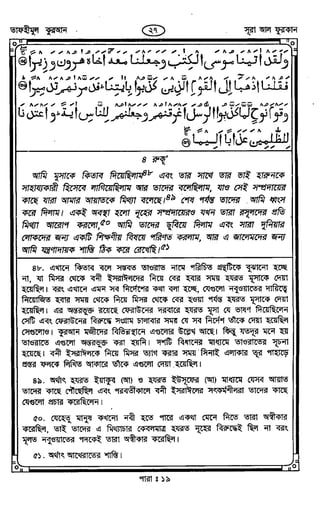 তাফহীমুল কুরআন ২৭ সূরা আল ফুরকান
وَلَقَدْ اٰتَيْنَا مُوسَى الْكِتٰبَ وَجَعَلْنَا مَعَهٗٓ اَخَاهُ هٰرُوْنَ وَزِيْرًا ﴿٣٥﴾
فَقُلْنَا اذْهَبَآ اِلَى الْقَوْمِ الَّذِيْنَ كَذَّبُوْا بِاٰيٰتِنَا فَدَمَّرْنٰهُمْ تَدْمِيْرًا ﴿٣٦﴾
وَقَوْمَ نُوْحٍ لَّمَّا كَذَّبُوا الرُّسُلَ اَغْرَقْنٰهُمْ وَجَعَلْنٰهُمْ لِلنَّاسِ اٰيَةً وَاَعْتَدْنَا
لِلظّٰلِمِيْنَ عَذَابًا اَلِيْمًا ﴿٣٧﴾
৪ রুকূ'
আমি মূসাকে কিতাব দিয়েছিলাম৪৮ এবং তার সাথে তার ভাই হারুনকে
সাহায্যকারী হিসেবে লাগিয়েছিলাম আর তাদের বলেছিলাম, যাও সেই সম্প্রদায়ের
কাছে যারা আমার আয়াতকে মিথ্যা বলেছে।৪৯ শেষ পর্যন্ত তাদের আমি ধ্বংস
করে দিলাম। একই অবস্থা হলো নূহের সম্প্রদায়েরও যখন তারা রসূলদের প্রতি
মিথ্যা আরোপ করলো,৫০ আমি তাদের ডুবিয়ে দিলাম এবং সারা দুনিয়ার
লোকদের জন্য একটি শিক্ষণীয় বিষয়ে পরিণত করলাম, আর এ জালেমদের জন্য
আমি যন্ত্রণাদায়ক শাস্তি ঠিক করে রেখেছি।৫১
৪৮. এখানে কিতাব বলে সম্ভবত তাওরাত নামে পরিচিত গ্রন্থটিকে বুঝানো হচ্ছে
না, যা মিসর থেকে বনী ইসরাঈলদের নিয়ে বের হবার সময় হযরত মূসাকে দেয়া
হয়েছিল। বরং এখানে এমন সব নির্দেশের কথা বলা হচ্ছে, যেগুলো নবুওয়াতের দায়িত্বে
নিয়োজিত হবার সময় থেকে নিয়ে মিসর থেকে বের হওয়া পর্যন্ত হযরত মূসাকে দেয়া
হয়েছিল। এর অন্তরভুক্ত রয়েছে ফেরাউনের দরবারে হযরত মূসা যে ভাষণ দিয়েছিলেন
সেটি এবং ফেরাউনের বিরুদ্ধে সংগ্রাম চলাবার সময় যে সব নির্দেশ তাঁকে দেয়া হয়েছিল
সেগুলোও। কুরআন মজীদের বিভিন্নস্থানে এগুলোর উল্লেখ আছে। কিন্তু সম্ভবত মনে হয়
তাওরাতে এগুলো অন্তরভুক্ত করা হয়নি। দশটি বিধানের মাধ্যমে তাওরাতের সূচনা
হয়েছে। বনী ইসরাঈলকে নিয়ে মিসর ত্যাগ করার সময় সিনাই এলাকার তূর পাহাড়ে
প্রস্তর ফলকে লিখিত আকারে তাঁকে এগুলো দেয়া হয়েছিল।
৪৯. অর্থাৎ হযরত ইয়াকুব (আ) ও হযরত ইউসুফের (আ) মাধ্যমে যেসব আয়াত
তাদের কাছে পৌঁছেছিল এবং পরবর্তীকালে বনী ইসরাঈলের সৎকর্মশীলরা তাদের কাছে
যেগুলো প্রচার করেছিলেন।
৫০. যেহেতু মানুষ কখনো নবী হতে পারে একথা মেনে নিতে তারা অস্বীকার
করেছিল, তাই তাদের এ মিথ্যাচার কেবলমাত্র হযরত নূহের বিরুদ্ধেই ছিল না বরং
মূলত নবুওয়াতের পদকেই তারা অস্বীকার করেছিল।
৫১. অর্থাৎ আখেরাতের শাস্তি।
পারা : ১৯